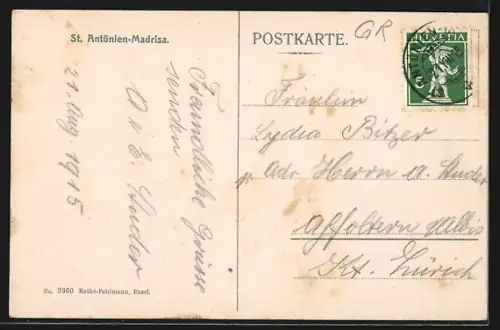 St. Antönien-Madrisa.
POSTKARTE.
GR
HELVETIA
Freundliche Grüsse
senden
A & E. Studer
21. Aug. 1915
Fräulein
Lydia Bitzer
pr. Adr. Herrn A. Studer
Affoltern a/Albis
Kt. Zürich
No. 3360 Rathe-Fehlmann, Basel.